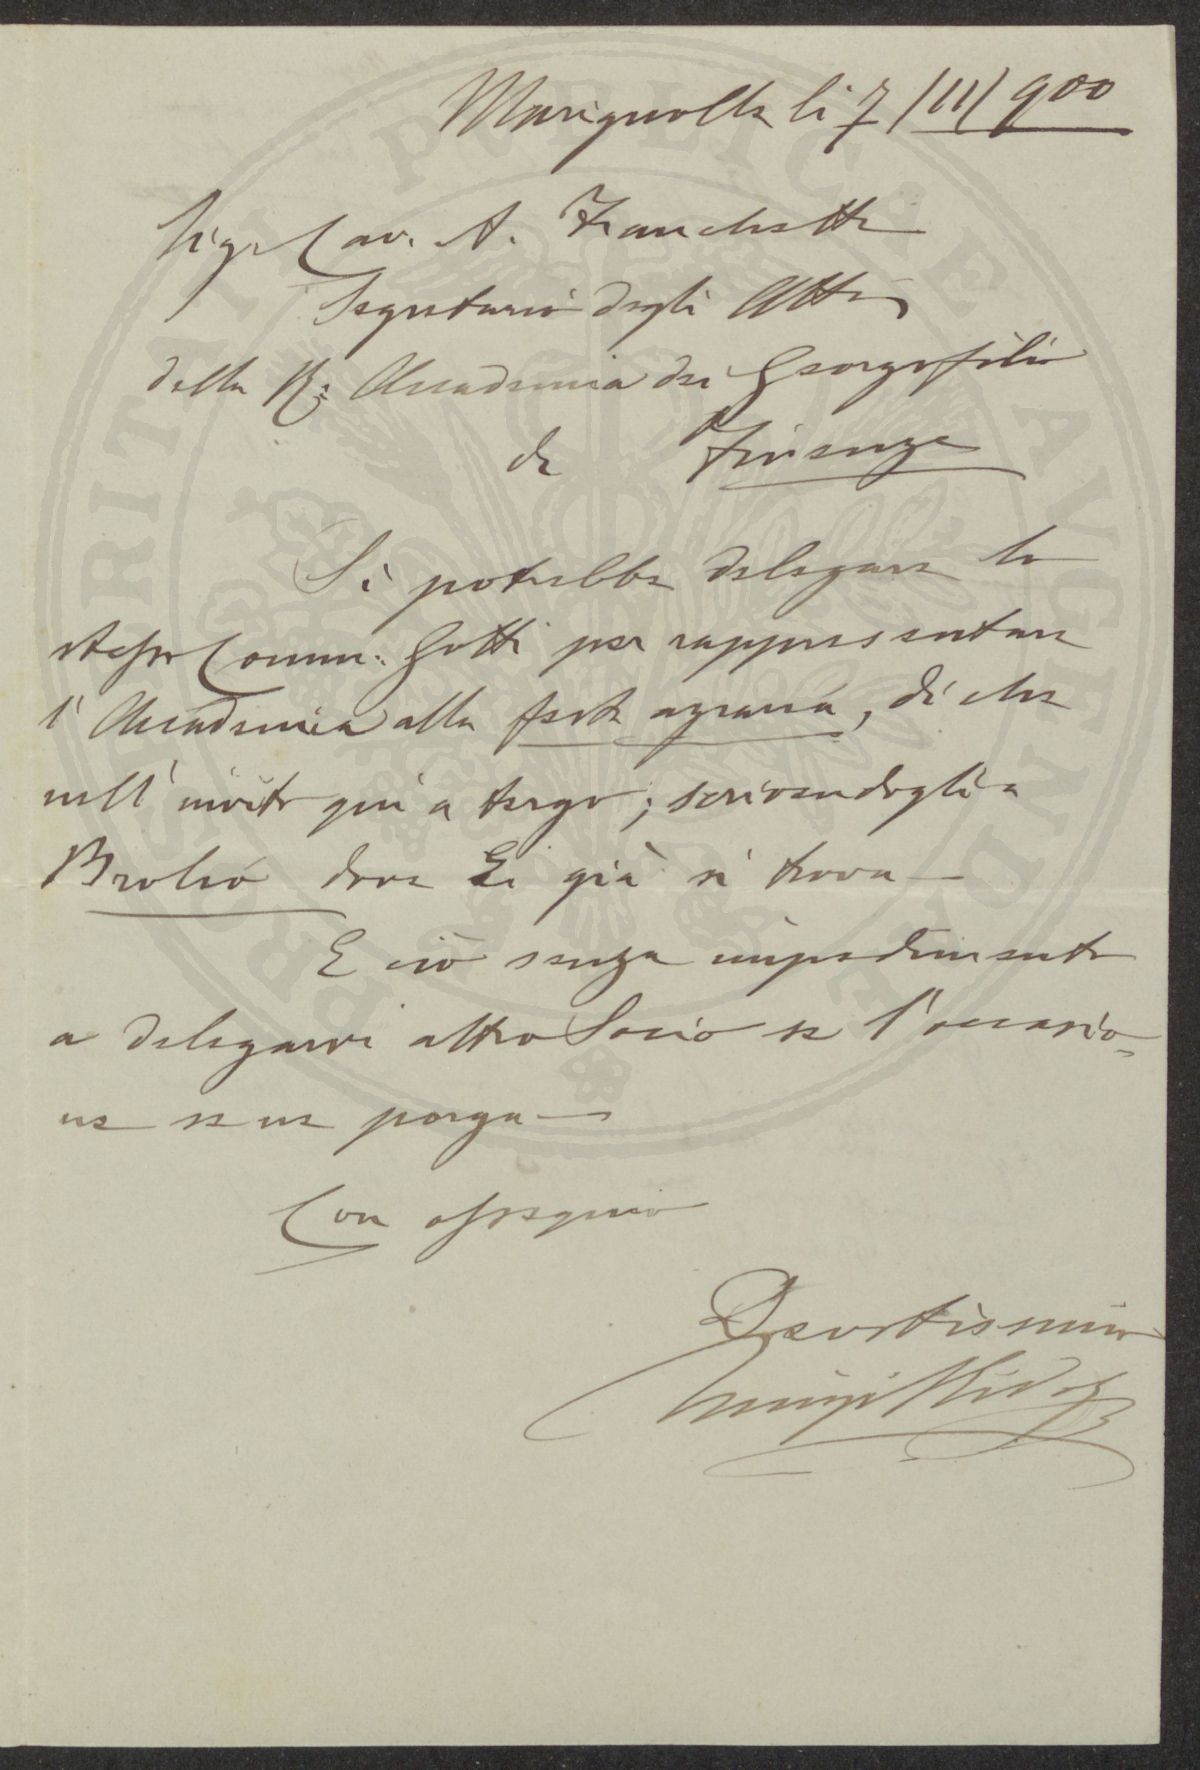 Marignolle li 7/11/900
Sigr Cav. A. Franchetti
Segretario degli Atti
della R. Accademia dei Georgofili
di Firenze
Si potrebbe delegare lo
stesso Comm. Gotti per rappresentare
l'Accademia alla festa agraria, di che
nell'invito qui a tergo; scrivendogli a
Brolio dove Ei già si trova—
E ciò senza impedimento
a delegarvi altro Socio se l'occasio=
ne se ne porga—
Con ossequio
Devotissimo
Luigi
PROSPERITATI PUBLICAE AUGENDAE